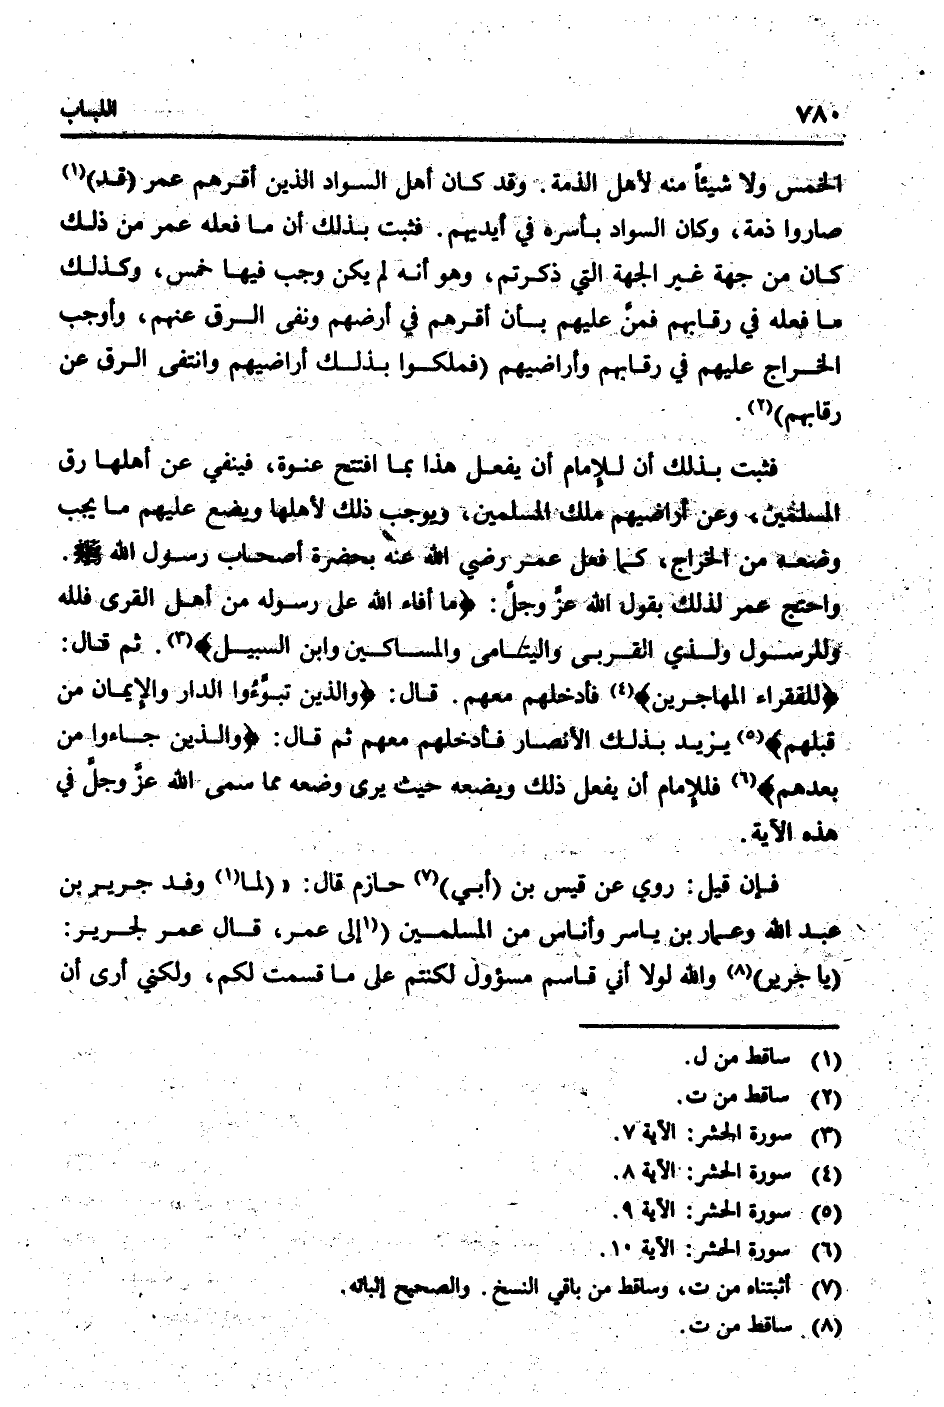 ٧٨٠ اللباب
الخمس ولا شيئاً منه لأهل الذمة. وقد كان أهل السواد الذين أقرهم عمر (قد)(١)
صاروا ذمة، وكان السواد بأسره في أيديهم. فثبت بذلك أن ما فعله عمر من ذلك
كان من جهة غير الجهة التي ذكرتم، وهو أنه لم يكن وجب فيها خمس، وكذلك
ما فعله في رقابهم فمنَّ عليهم بأن أقرهم في أرضهم ونفى الرق عنهم، وأوجب
الخراج عليهم في رقابهم وأراضيهم (فملكوا بذلك أراضيهم وانتفى الرق عن
رقابهم)(٢).
فثبت بذلك أن للإمام أن يفعل هذا بما افتتح عنوة، فينفي عن أهلها رق
المسلمين، وعن أراضيهم ملك المسلمين، ويوجب ذلك لأهلها ويضع عليهم ما يجب
وضعه من الخراج، كما فعل عمر رضي الله عنه بحضرة أصحاب رسول الله ﷺ.
واحتج عمر لذلك بقول الله عزَّ وجلَّ: ﴿ما أفاء الله على رسوله من أهل القرى فلله
وللرسول ولذي القربى واليتامى والمساكين وابن السبيل﴾(٣). ثم قال:
﴿للفقراء المهاجرين﴾(٤) فأدخلهم معهم. قال: ﴿والذين تبوَّءُوا الدار والإيمان من
قبلهم﴾(٥) يزيد بذلك الأنصار فأدخلهم معهم ثم قال: ﴿والذين جاءوا من
بعدهم﴾(٦) فللإمام أن يفعل ذلك ويضعه حيث يرى وضعه مما سمى الله عزَّ وجلَّ في
هذه الآية.
فإن قيل: روي عن قيس بن (أبي)(٧) حازم قال: « (لما(١) وفد جرير بن
عبد الله وعمار بن ياسر وأناس من المسلمين (١)إلى عمر، قال عمر لجرير:
(يا جرير)(٨) والله لولا أني قاسم مسؤول لكنتم على ما قسمت لكم، ولكني أرى أن
(١) ساقط من ل.
(٢) ساقط من ت.
(٣) سورة الحشر: الآية ٧.
(٤) سورة الحشر: الآية ٨.
(٥) سورة الحشر: الآية ٩.
(٦) سورة الحشر: الآية ١٠.
(٧) أثبتناه من ت، وساقط من باقي النسخ. والصحيح إثباته.
(٨) ساقط من ت.